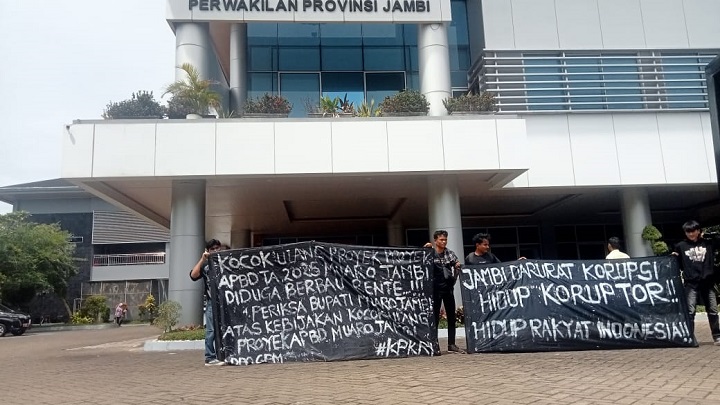 PERWAKILAN PROVINSI JAMBI
KOCOK ULANG PROYEK PROYEK
APBD TA 2025 MUARO JAMBI
DIDUGA BERBAU FENTE !!!
PERIKSA BUPATI MUARO JAMBI
ATAS KEBIJAKAN KOCOK ULANG
PROYEK APBD MUARO JAMBI
#KPKRI
JAMBI DARURAT KORUPSI
HIDUP "KORUPTOR!!
HIDUP RAKYAT INDONESIA!!